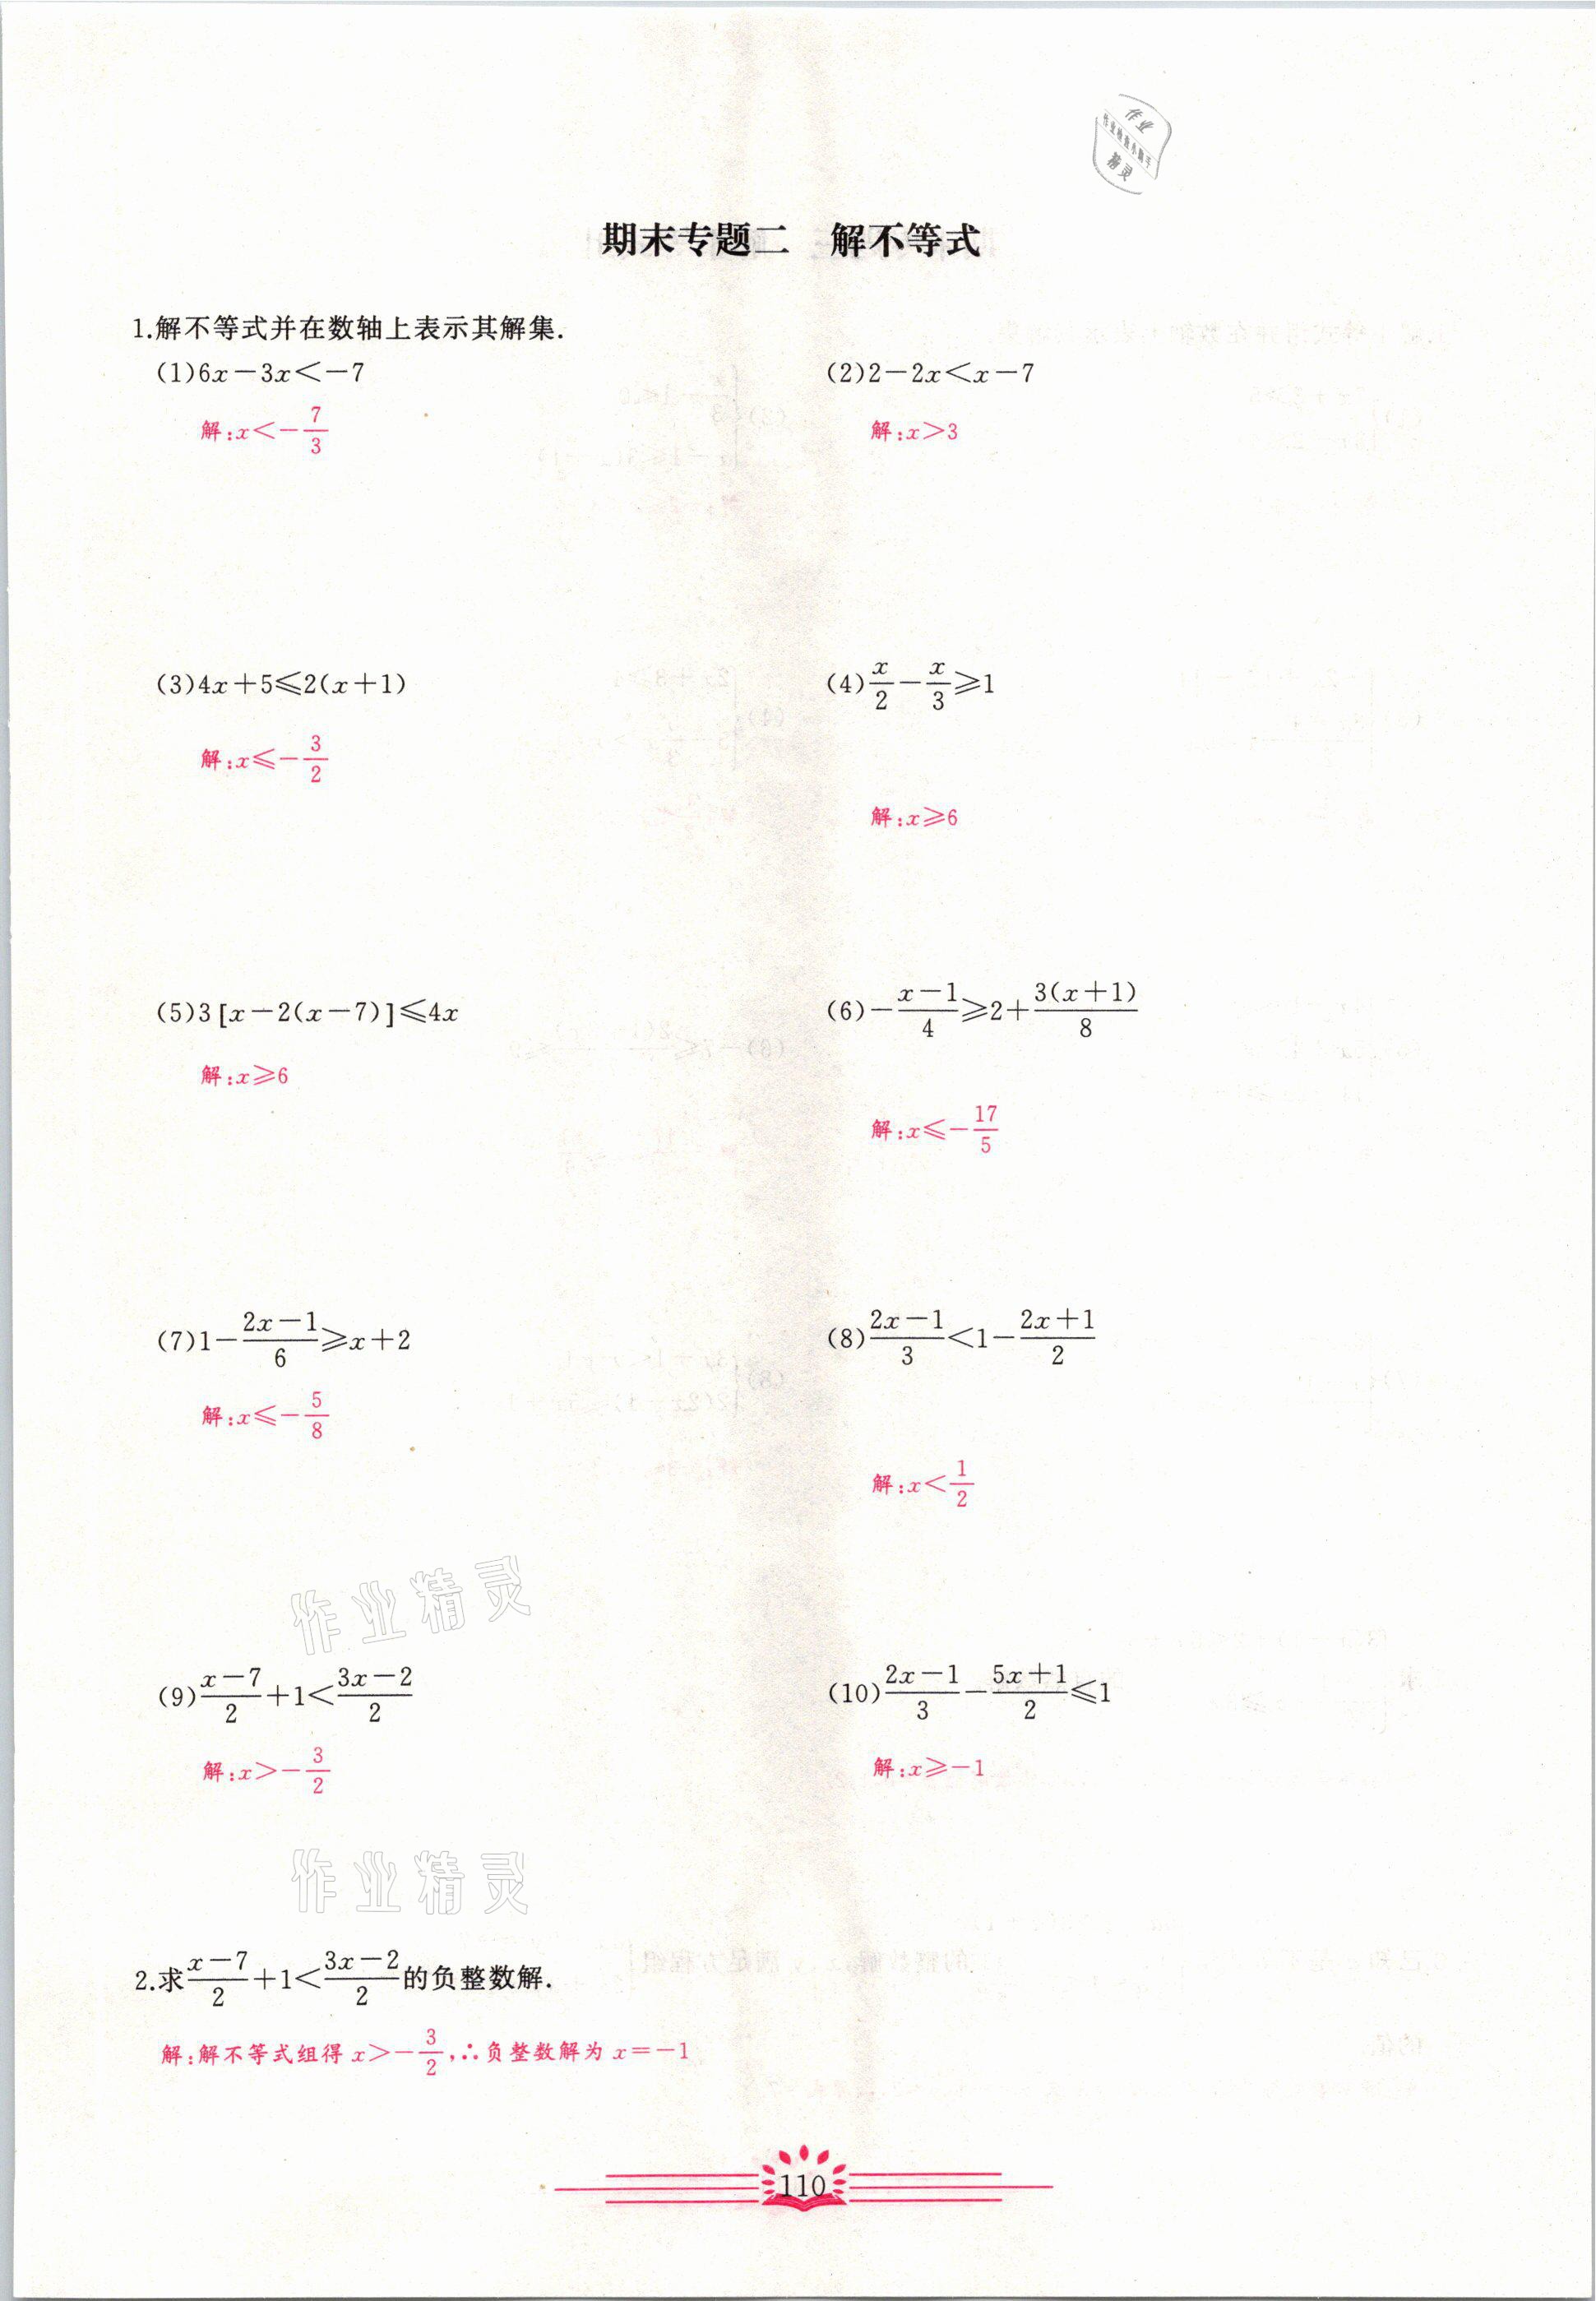 作业
作业检查小助手
精灵
期末专题二 解不等式
1.解不等式并在数轴上表示其解集.
(1)6x－3x＜－7
(2)2－2x＜x－7
解:x＜－7/3
解:x＞3
(3)4x＋5≤2(x＋1)
(4)x/2－x/3≥1
解:x≤－3/2
解:x≥6
(5)3[x－2(x－7)]≤4x
(6)－(x－1)/4≥2＋3(x＋1)/8
解:x≥6
解:x≤－17/5
(7)1－(2x－1)/6≥x＋2
(8)(2x－1)/3＜1－(2x＋1)/2
解:x≤－5/8
解:x＜1/2
作业精灵
(9)(x－7)/2＋1＜(3x－2)/2
(10)(2x－1)/3－(5x＋1)/2≤1
解:x＞－3/2
解:x≥－1
作业精灵
2.求(x－7)/2＋1＜(3x－2)/2的负整数解.
解:解不等式组得 x＞－3/2,∴负整数解为 x＝－1
110